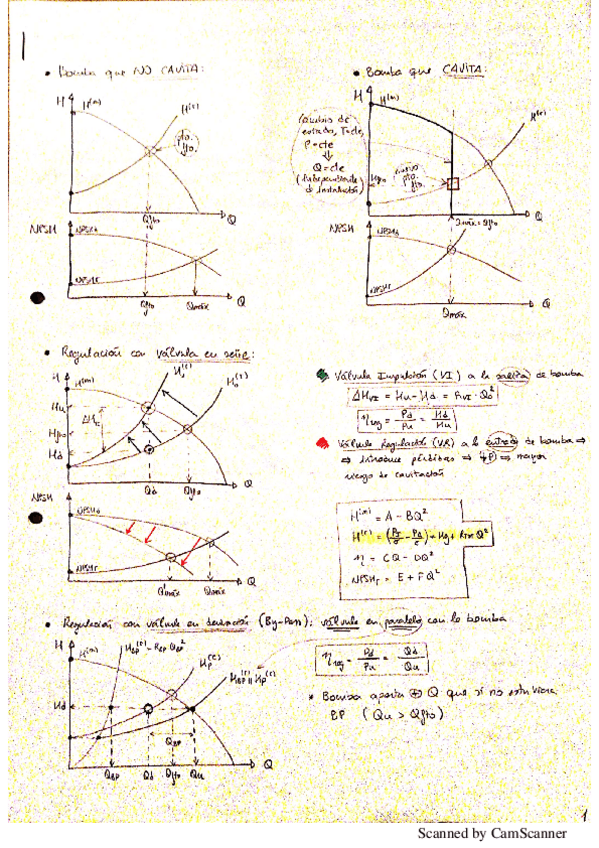 1
• Bomba que NO CAVITA:
H
H(m)
H(r)
pto. fto.
Q
Qfto
NPSH
NPSHd
NPSHr
Qfto
Qmáx
Q
• Bomba que CAVITA:
H
H(m)
H(r)
Cambio de
estado, T=cte,
P=cte
⇓
Q=cte
(independiente
de instalación)
nuevo
pto.
fto.
Q
NPSH
NPSHd
NPSHr
Qmáx
Q
• Regulación con válvula en serie:
H
H(m)
Hu(r)
Hd(r)
Hu
ΔHVI
Hfto
Hd
Qd
Qfto
Q
NPSH
NPSHd
NPSHr
Q'máx
Qmáx
Q
Válvula Impulsión (VI) a la salida de bomba
ΔHVI = Hu - Hd = RVI · Qd²
ηreg = Pd/Pu = Hd/Hu
Válvula Regulación (VR) a la entrada de bomba ⇒
⇒ introduce pérdidas ⇒ ↓P ⇒ mayor
riesgo de cavitación
H(m) = A - BQ²
η = CQ - DQ²
NPSHr = E + FQ²
• Regulación con válvula en derivación (By-Pass): válvula en paralelo con la bomba
H
H(m)
HBP(r) = RBP QBP²
Hp(r)
HBP(r) || Hp(r)
Hd
QBP
QBP
Qd
Qfto
Qu
Q
ηreg = Pd/Pu = Qd/Qu
* Bomba aporta ⊕ Q que si no estuviera
BP (Qu > Qfto)
1
Scanned by CamScanner